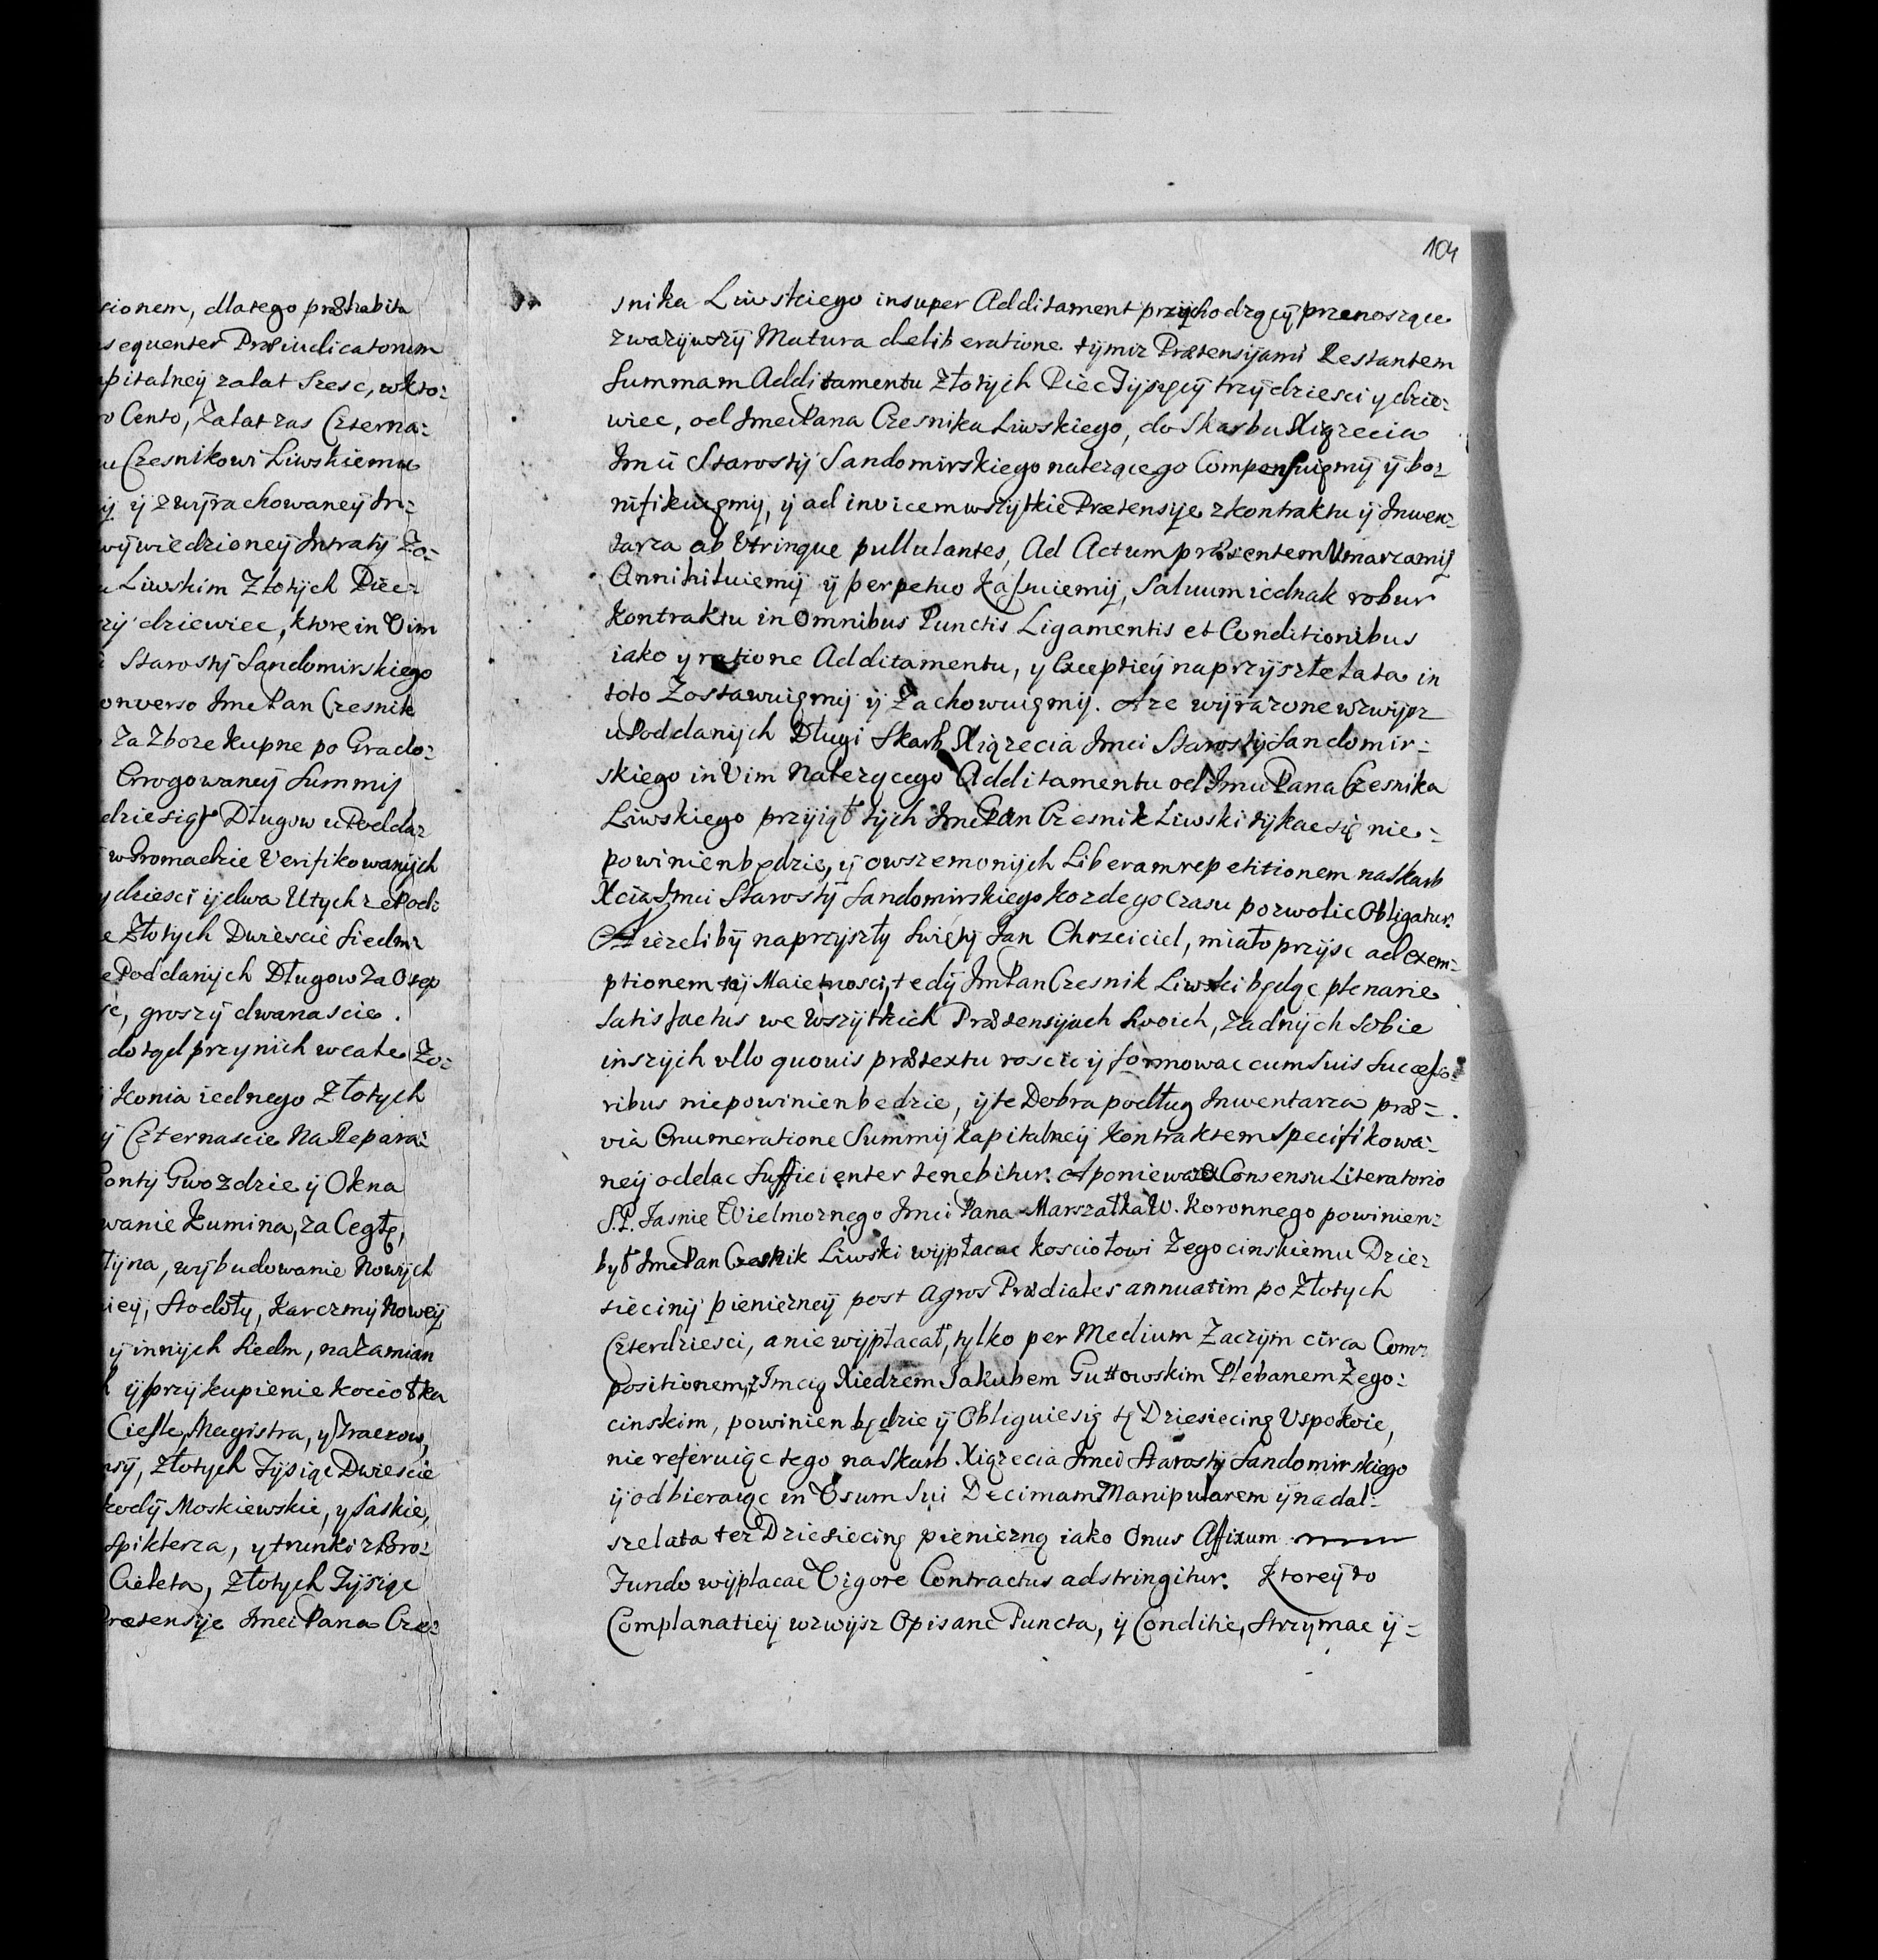 104
sionem, dlatego præhabita
sequenter Præiudicatorum
pitalney za lat Szesc, w kto=
o Cento, Za lat zas Czterna=
u Czesnikowi Liwskiemu
ÿ ÿ z wÿrachowaneÿ In=
wÿwiedzioneÿ Intratÿ Zo=
u Liwskim Złotÿch Piec=
rzÿ dziewiec, ktore in Vim
i Starostÿ Sandomirskiego
onverso Jme Pan Czesnik
Za Zboze kupne po Grado=
Errogowaneÿ Summÿ
dziesiąt Długow u Podda=
w Gromadzie Verifikowanÿch
ydziesci ÿ dwa U tych ze Pod=
e Złotych Dwiescie Siedm=
e Poddanÿch Długow za Osep
sc, groszÿ dwanascie.
dotąd przy nich wcale Zo=
Konia iednego Złotych
ÿ Czternascie Na Repara=
Gontÿ Gwozdzie ÿ Okna
wanie Kumina, za Cegłę,
łÿna, wÿbudowanie Nowÿch
nieÿ, Stodołÿ, Karczmÿ Noweÿ
ÿ innÿch Siedm, na Zamian
ÿ przÿkupienie kociołka
Ciesle, Magistra, y Traczow,
Złotych Tÿsiąc Dwiescie
kodÿ Moskiewskie, y Saskie,
Spiklerza, y trunki z Bro=
Cieleta, Złotych Tÿsiąc
Prætensÿe Jmci Pana Cze=
snika Liwskiego insuper Additament przÿchodzącÿ przenoszące
zwazÿwszÿ Matura deliberatione tÿmiz Prætensÿami Restantem
Summam Additamentu Złotÿch Piec Tÿsięcÿ trzÿdziesci y dzie=
wiec, od Jmci Pana Czesnika Liwskiego, do Skarbu Xiązecia
Jmci Starostÿ Sandomirskiego nalezącego Compensuiąmÿ ÿ bo=
nifikuiąmÿ, ÿ ad invicem wszÿstkie Prætensÿe z kontraktu ÿ Inwen=
tarza ab Utrinque pullulantes, Ad Actum præsentem Umarzamÿ
Annihiluiemÿ ÿ perpetuo Kassuiemÿ, Saluum iednak robur
Kontraktu in Omnibus Punctis Ligamentis et Conditionibus
iako y ratione Additamentu, y Exceptieÿ na przÿszłe lata in
toto Zostawuiąmÿ ÿ Zachowuiąmÿ. A ze wÿrazone wzwÿsz
u Poddanÿch Długi Skarb Xiązecia Jmci Starostÿ Sandomir=
skiego in Vim Nalezącego Additamentu od Jmci Pana Czesnika
Liwskiego przÿiął tÿch Jme Pan Czesnik Liwski tÿkac się nie=
powinien będzie, ÿ owszem o nÿch Liberam repetitionem na Skarb
Xcia Jmci Starostÿ Sandomirskiego kozdego Czasu pozwolic Obligatur.
A iezelibÿ na przÿszłÿ Swiętÿ Jan Chrzciciel, miało przÿsc ad exem=
ptionem teÿ Maietnosci, tedÿ Jm Pan Czesnik Liwski będąc plenarie
Satisfactus we Wszÿstkich Prætensÿach Swoich, zadnÿch Sobie
inszÿch ullo quouis prætextu roscic ÿ formowac cum Suis Successo=
ribus niepowinien bedzie, ÿ te Dobra podług Inwentarza præ=
via Enumeratione Summÿ kapitalneÿ Kontraktem Specifikowa=
neÿ oddac Sufficienter tenebitur. A poniewaz ex Consensu Literatorio
S.P. Jasnie Wielmoznego Jmci Pana Marszałka W. Koronnego powinien=
był Jme Pan Czesnik Liwski wÿpłacac kosciołowi Zegocinskiemu Dzie=
siecinÿ pieniezneÿ post Agros Prædiales annuatim po Złotych
Czterdziesci, a nie wÿpłacał, tylko per Medium Zaczÿm circa Com=
positionem, z Imcią Xiedzem Jakubem Guttowskim Plebanem Zego=
cinskim, powinien będzie ÿ Obliguie się tę Dziesiecinę Uspokoic,
nie referuiąc tego na Skarb Xiązecia Jmci Starostÿ Sandomirskiego
ÿ odbieraiąc in Usum Sui Decimam Manipularem ÿ na dal=
sze lata tez Dziesiecinę pieniezną iako Onus Affixum
Fundo wÿpłacac Vigore Contractus adstringitur. Ktoreÿ to
Complanatieÿ wzwÿsz Opisane Puncta, ÿ Conditie, Strzymac ÿ=